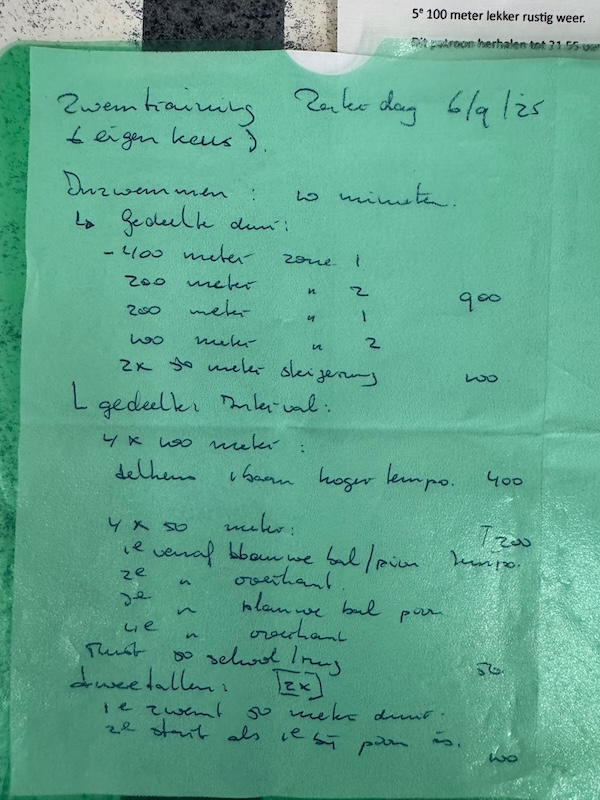 5e 100 meter lekker rustig weer.
Dit patroon herhalen tot 21.55 uur
Zwemtraining Zaterdag 6/9/25
(eigen keus).
Inzwemmen: 10 minuten.
↳ gedeelte duur:
- 400 meter zone 1
200 meter " 2 900
200 meter " 1
100 meter " 2
2x 50 meter steigerung 100
L gedeelte Interval:
4 x 100 meter:
telkens 1 baan hoger tempo. 400
4 x 50 meter: 200
1e vanaf blauwe bal / tempo.
2e " overhant.
3e " blauwe bal
4e " overhant
Rust 50 school/rug 50
tweetallen: [2x]
1e zwemt 50 meter duur.
2e start als 1e bij is.
100